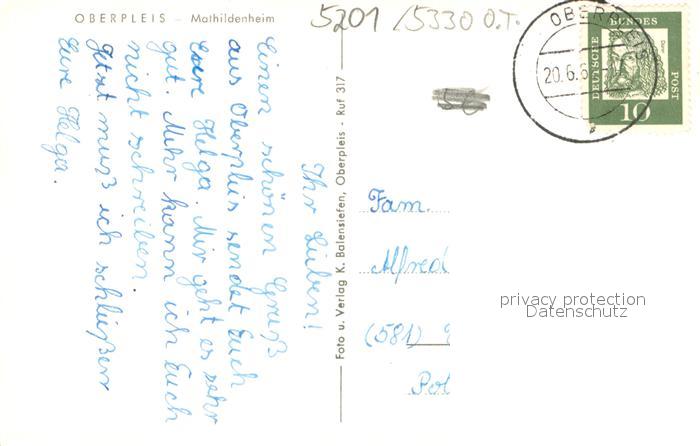 OBERPLEIS – Mathildenheim
5201 /5330 O.T.
Ihr Lieben!
Einen schönen Gruß
aus Oberpleis sendet Euch
Eure Helga. Mir geht es sehr
gut. Mehr kann ich Euch
nicht schreiben.
Jetzt muß ich schließen
Eure Helga.
Foto u. Verlag K. Balensiefen, Oberpleis - Ruf 317
OBERPLEIS
20.6.6
DEUTSCHE
BUNDES
POST
10
Fam.
Alfred
(581)
privacy protection
Datenschutz